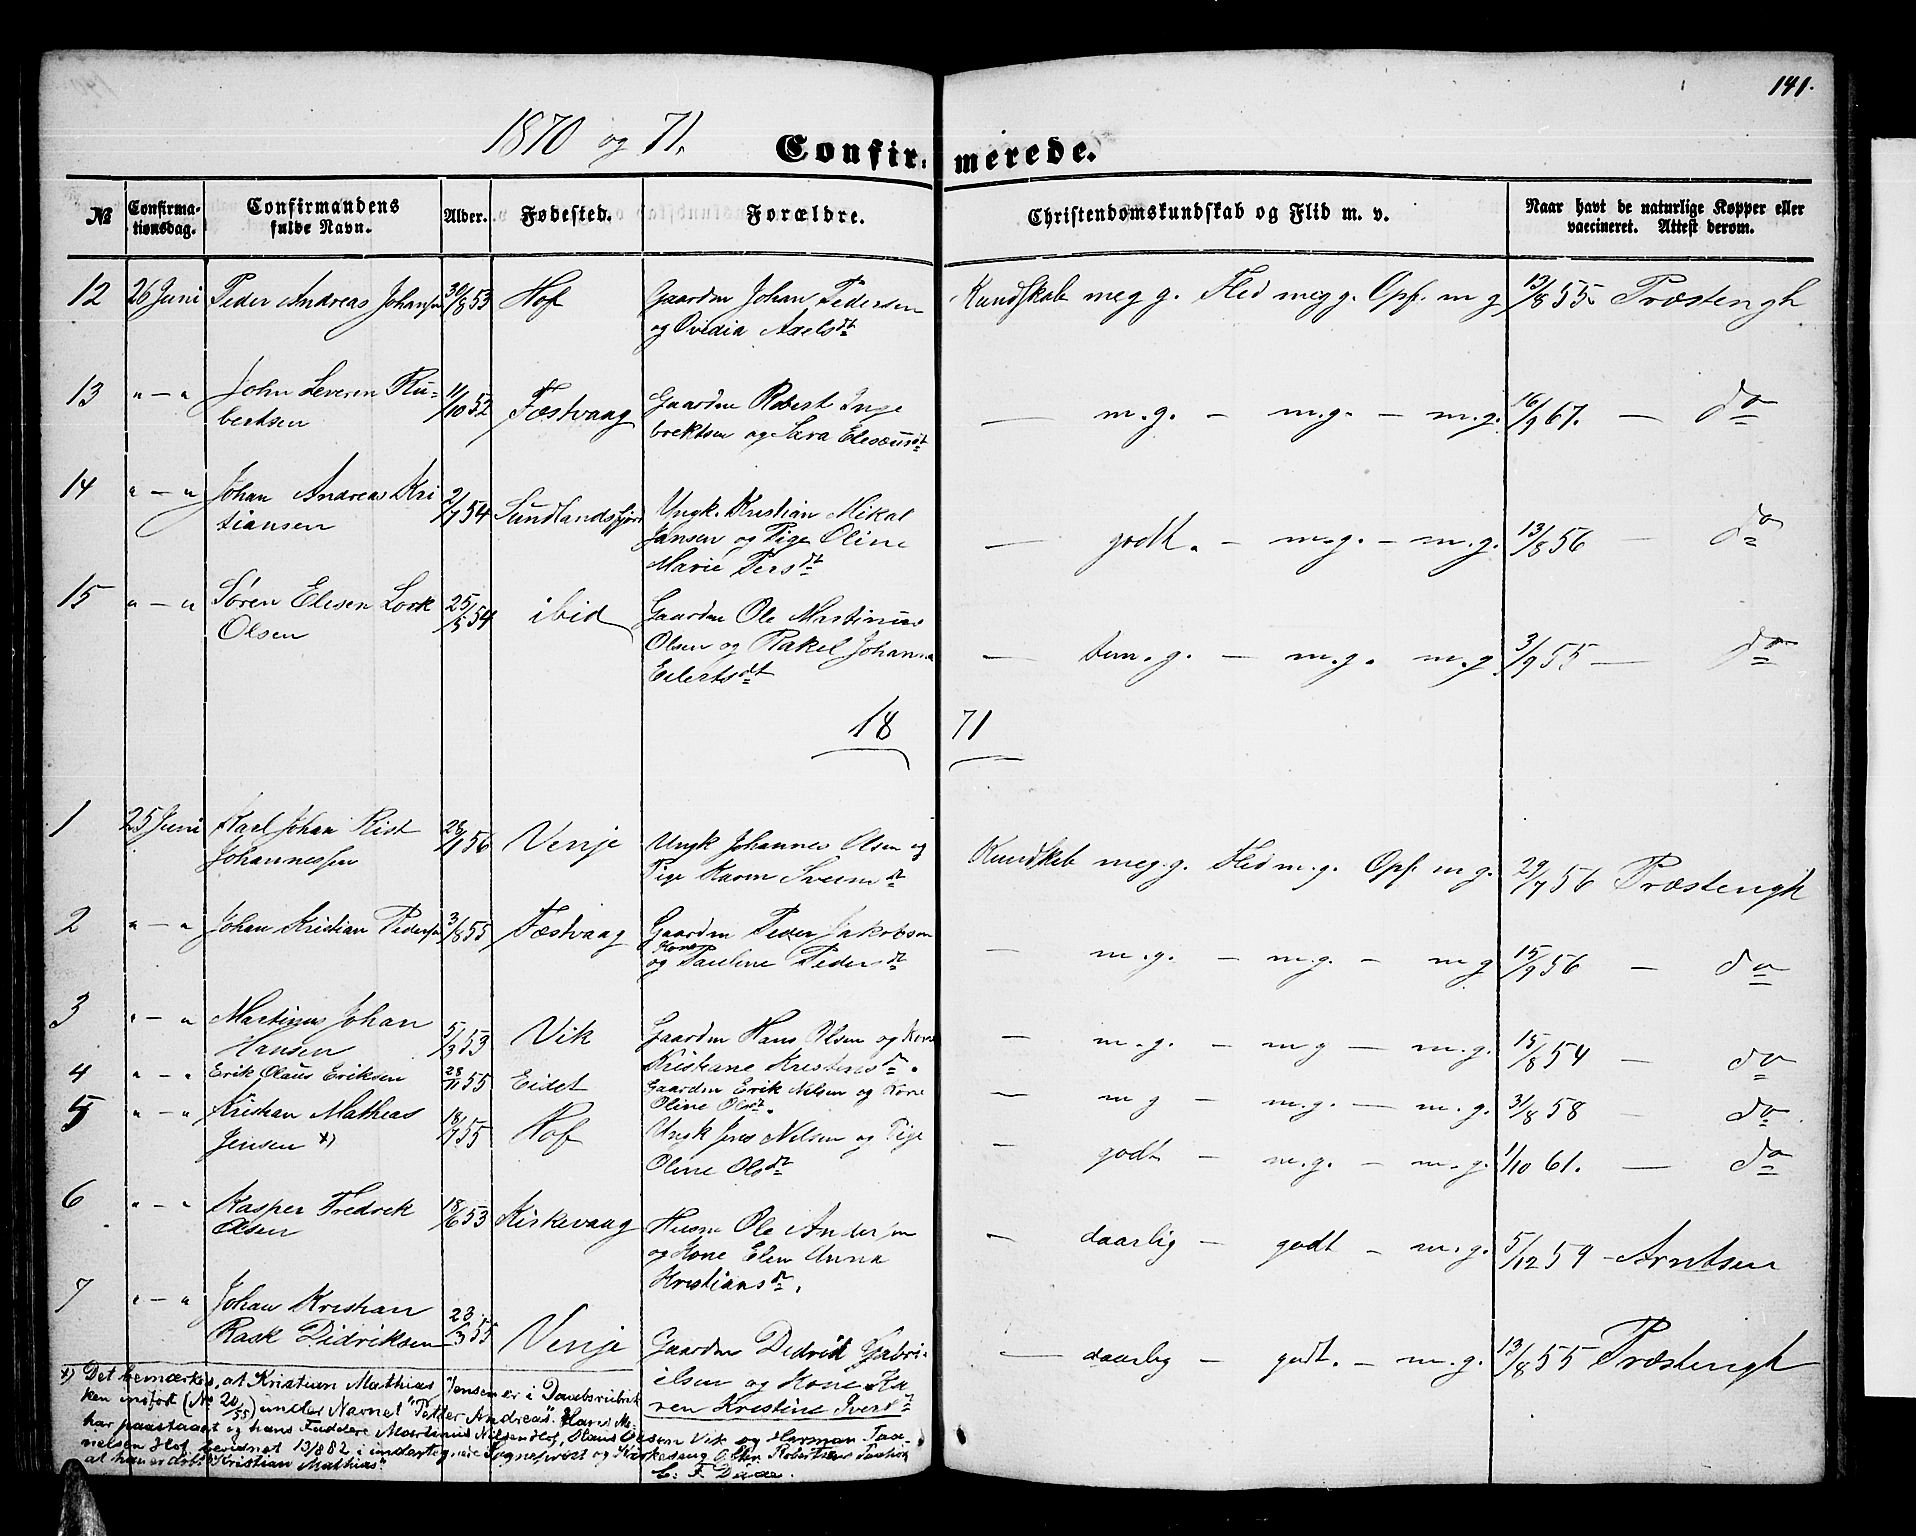 141.
1870 og 71.
Confir- merede.
№ Confirma- tionsdag. Confirmandens fulde Navn. Alder. Fødested. Forældre. Christendomskundskab og Flid m. v. Naar havt de naturlige Kopper eller vaccineret. Attest derom.
12 26 Juni Peder Andreas Johansen 30/8 53 Hof Gaardm Johan Pedersen Kundskab meg g. Flid meg g. Opf. m g 13/8 55. Præstengh
og Ovidia Axelsdt
13 " — " John Severin Ru- 11/10 52 Fæstvaag Gaardm Robert Inge — m.g. — m.g. — m.g. 16/9 67. — do
bertsen brektsen og Sara Elisæusdt
14 " — " Johan Andreas Kri 2/7 54 Sundlandsfjord Ungk. Kristian Mikal — godt. — m.g. — m.g. 13/8 56 — do
tiansen Jansen og Pige Oline
Marie Persdt
15 " — " Søren Elisen Lork 25/5 54 ibid Gaardm Ole Martinus — tem.g. — m.g. m.g 3/9 55 — do
Olsen Olsen og Rakel Johanna
Eilertsdt
18 71
1 25 Juni Karl Johan Rist 28/1 56 Venje Ungk Johannes Olsen og Kundskab meg.g. Flid m.g. Opf. m g. 29/7 56 Præstengh
Johannessen Pige Karen Sveinsdt
2 " — " Johan Kristian Pedersen 3/8 55 Fæstvaag Gaardm Peder Jakobsen — m.g. — m.g. — m g 15/9 56 — do
og Kone Pauline Pedersdt
3 " — " Martinus Johan 5/3 53 Vik Gaardm Hans Olsen og Kone — m.g. — m g — m.g. 15/8 54 — do
Hansen Kristiane Kristensdt.
4 " — " Erik Olaus Eriksen 28/11 55 Eidet Gaardm Erik Nilsen og Kone — m g — m.g. — m.g. 31/8 58 — do
Oline Olsdt.
5 " — " Kristian Mathias 18/7 55 Hof Ungk Jens Nilsen og Pige — godt — m.g. — m.g. 1/10 61. — do
Jensen x) Oline Olsdt
6 " — " Kasper Fredrek 18/6 53 Kirkevaag Husm Ole Andersen — daarlig — godt — m.g. 5/12 59 - Arntsen
Olsen og Kone Elen Anna
Kristiansdt.
7 " — " Johan Kristian 23/3 55 Venje Gaardm Didrik Gabri- — daarlig — godt. — m.g. 13/8 55 Præstengh
Rask Didriksen elsen og Kone Ka
ren Kristine Iversdt
x) Det bemærkes, at Kristian Mathias Jensen er i Daabsrubrik
ken indført (No 20/55) under Navnet "Petter Andreas". Hans Mo-
har paastaaet og hans Faddere Martinus Nilsen Hof, Hans Olsen Vik og Herman
nelsen Hof bevidnet 13/8 82 i undertegnede Sogneprest og Kirkesang Robertsens
at han er døbt "Kristian Mathias".